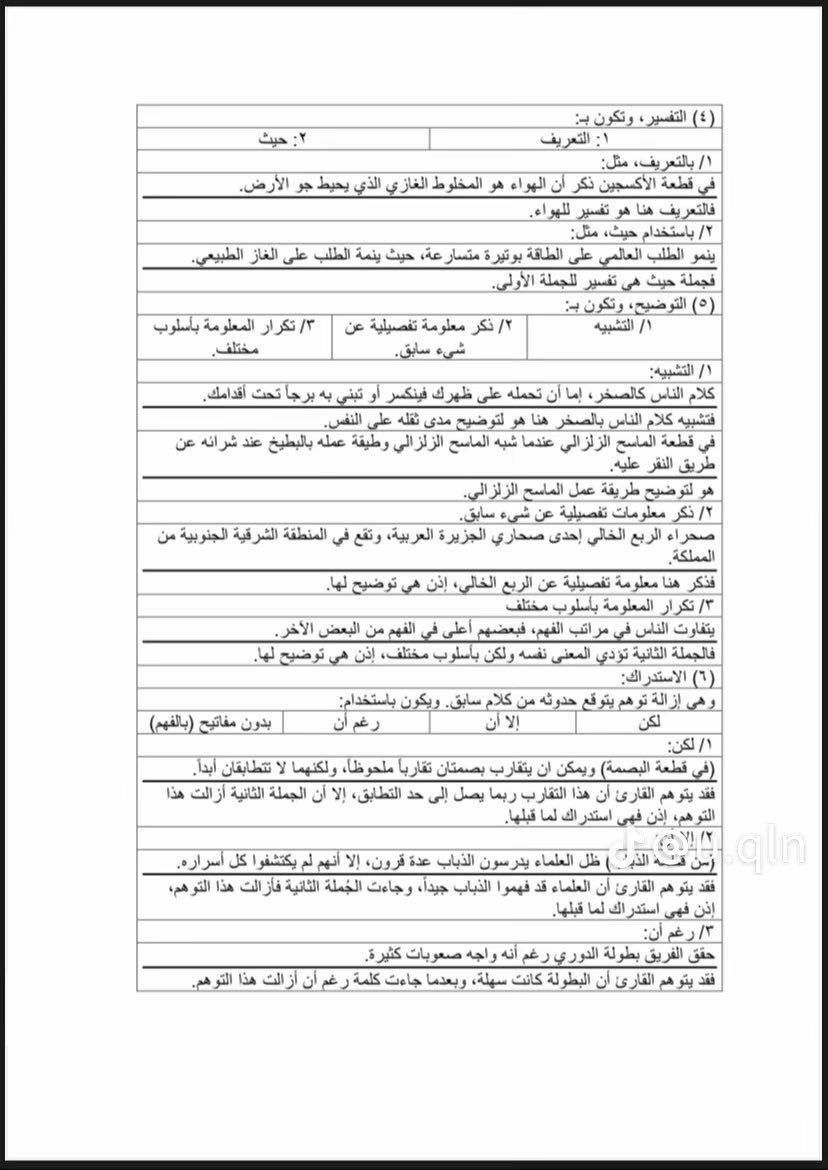 (٤) التفسير، وتكون بـ:
١: التعريف
٢: حيث
١/ بالتعريف، مثل:
في قطعة الأكسجين ذكر أن الهواء هو المخلوط الغازي الذي يحيط جو الأرض.
فالتعريف هنا هو تفسير للهواء.
٢/ باستخدام حيث، مثل:
ينمو الطلب العالمي على الطاقة بوتيرة متسارعة، حيث ينمة الطلب على الغاز الطبيعي.
فجملة حيث هي تفسير للجملة الأولى.
(٥) التوضيح، وتكون بـ:
١/ التشبيه
٢/ ذكر معلومة تفصيلية عن
شيء سابق.
٣/ تكرار المعلومة بأسلوب
مختلف.
١/ التشبيه:
كلام الناس كالصخر، إما أن تحمله على ظهرك فينكسر أو تبني به برجاً تحت أقدامك.
فتشبيه كلام الناس بالصخر هنا هو لتوضيح مدى ثقله على النفس.
في قطعة الماسح الزلزالي عندما شبه الماسح الزلزالي وطيقة عمله بالبطيخ عند شرائه عن
طريق النقر عليه.
هو لتوضيح طريقة عمل الماسح الزلزالي.
٢/ ذكر معلومات تفصيلية عن شيء سابق.
صحراء الربع الخالي إحدى صحاري الجزيرة العربية، وتقع في المنطقة الشرقية الجنوبية من
المملكة.
فذكر هنا معلومة تفصيلية عن الربع الخالي، إذن هي توضيح لها.
٣/ تكرار المعلومة بأسلوب مختلف
يتفاوت الناس في مراتب الفهم، فبعضهم أعلى في الفهم من البعض الآخر.
فالجملة الثانية تؤدي المعنى نفسه ولكن بأسلوب مختلف، إذن هي توضيح لها.
(٦) الاستدراك:
وهي إزالة توهم يتوقع حدوثه من كلام سابق. ويكون باستخدام:
لكن
إلا أن
رغم أن
بدون مفاتيح (بالفهم)
١/ لكن:
(في قطعة البصمة) ويمكن ان يتقارب بصمتان تقارباً ملحوظاً، ولكنهما لا تتطابقان أبداً.
فقد يتوهم القارئ أن هذا التقارب ربما يصل إلى حد التطابق، إلا أن الجملة الثانية أزالت هذا
التوهم، إذن فهي استدراك لما قبلها.
٢/ إلا
@u.qln
قطعة ) ظل العلماء يدرسون الذباب عدة قرون، إلا أنهم لم يكتشفوا كل أسراره.
فقد يتوهم القارئ أن العلماء قد فهموا الذباب جيداً، وجاءت الجُملة الثانية فأزالت هذا التوهم،
إذن فهي استدراك لما قبلها.
٣/ رغم أن:
حقق الفريق بطولة الدوري رغم أنه واجه صعوبات كثيرة.
فقد يتوهم القارئ أن البطولة كانت سهلة، وبعدما جاءت كلمة رغم أن أزالت هذا التوهم.